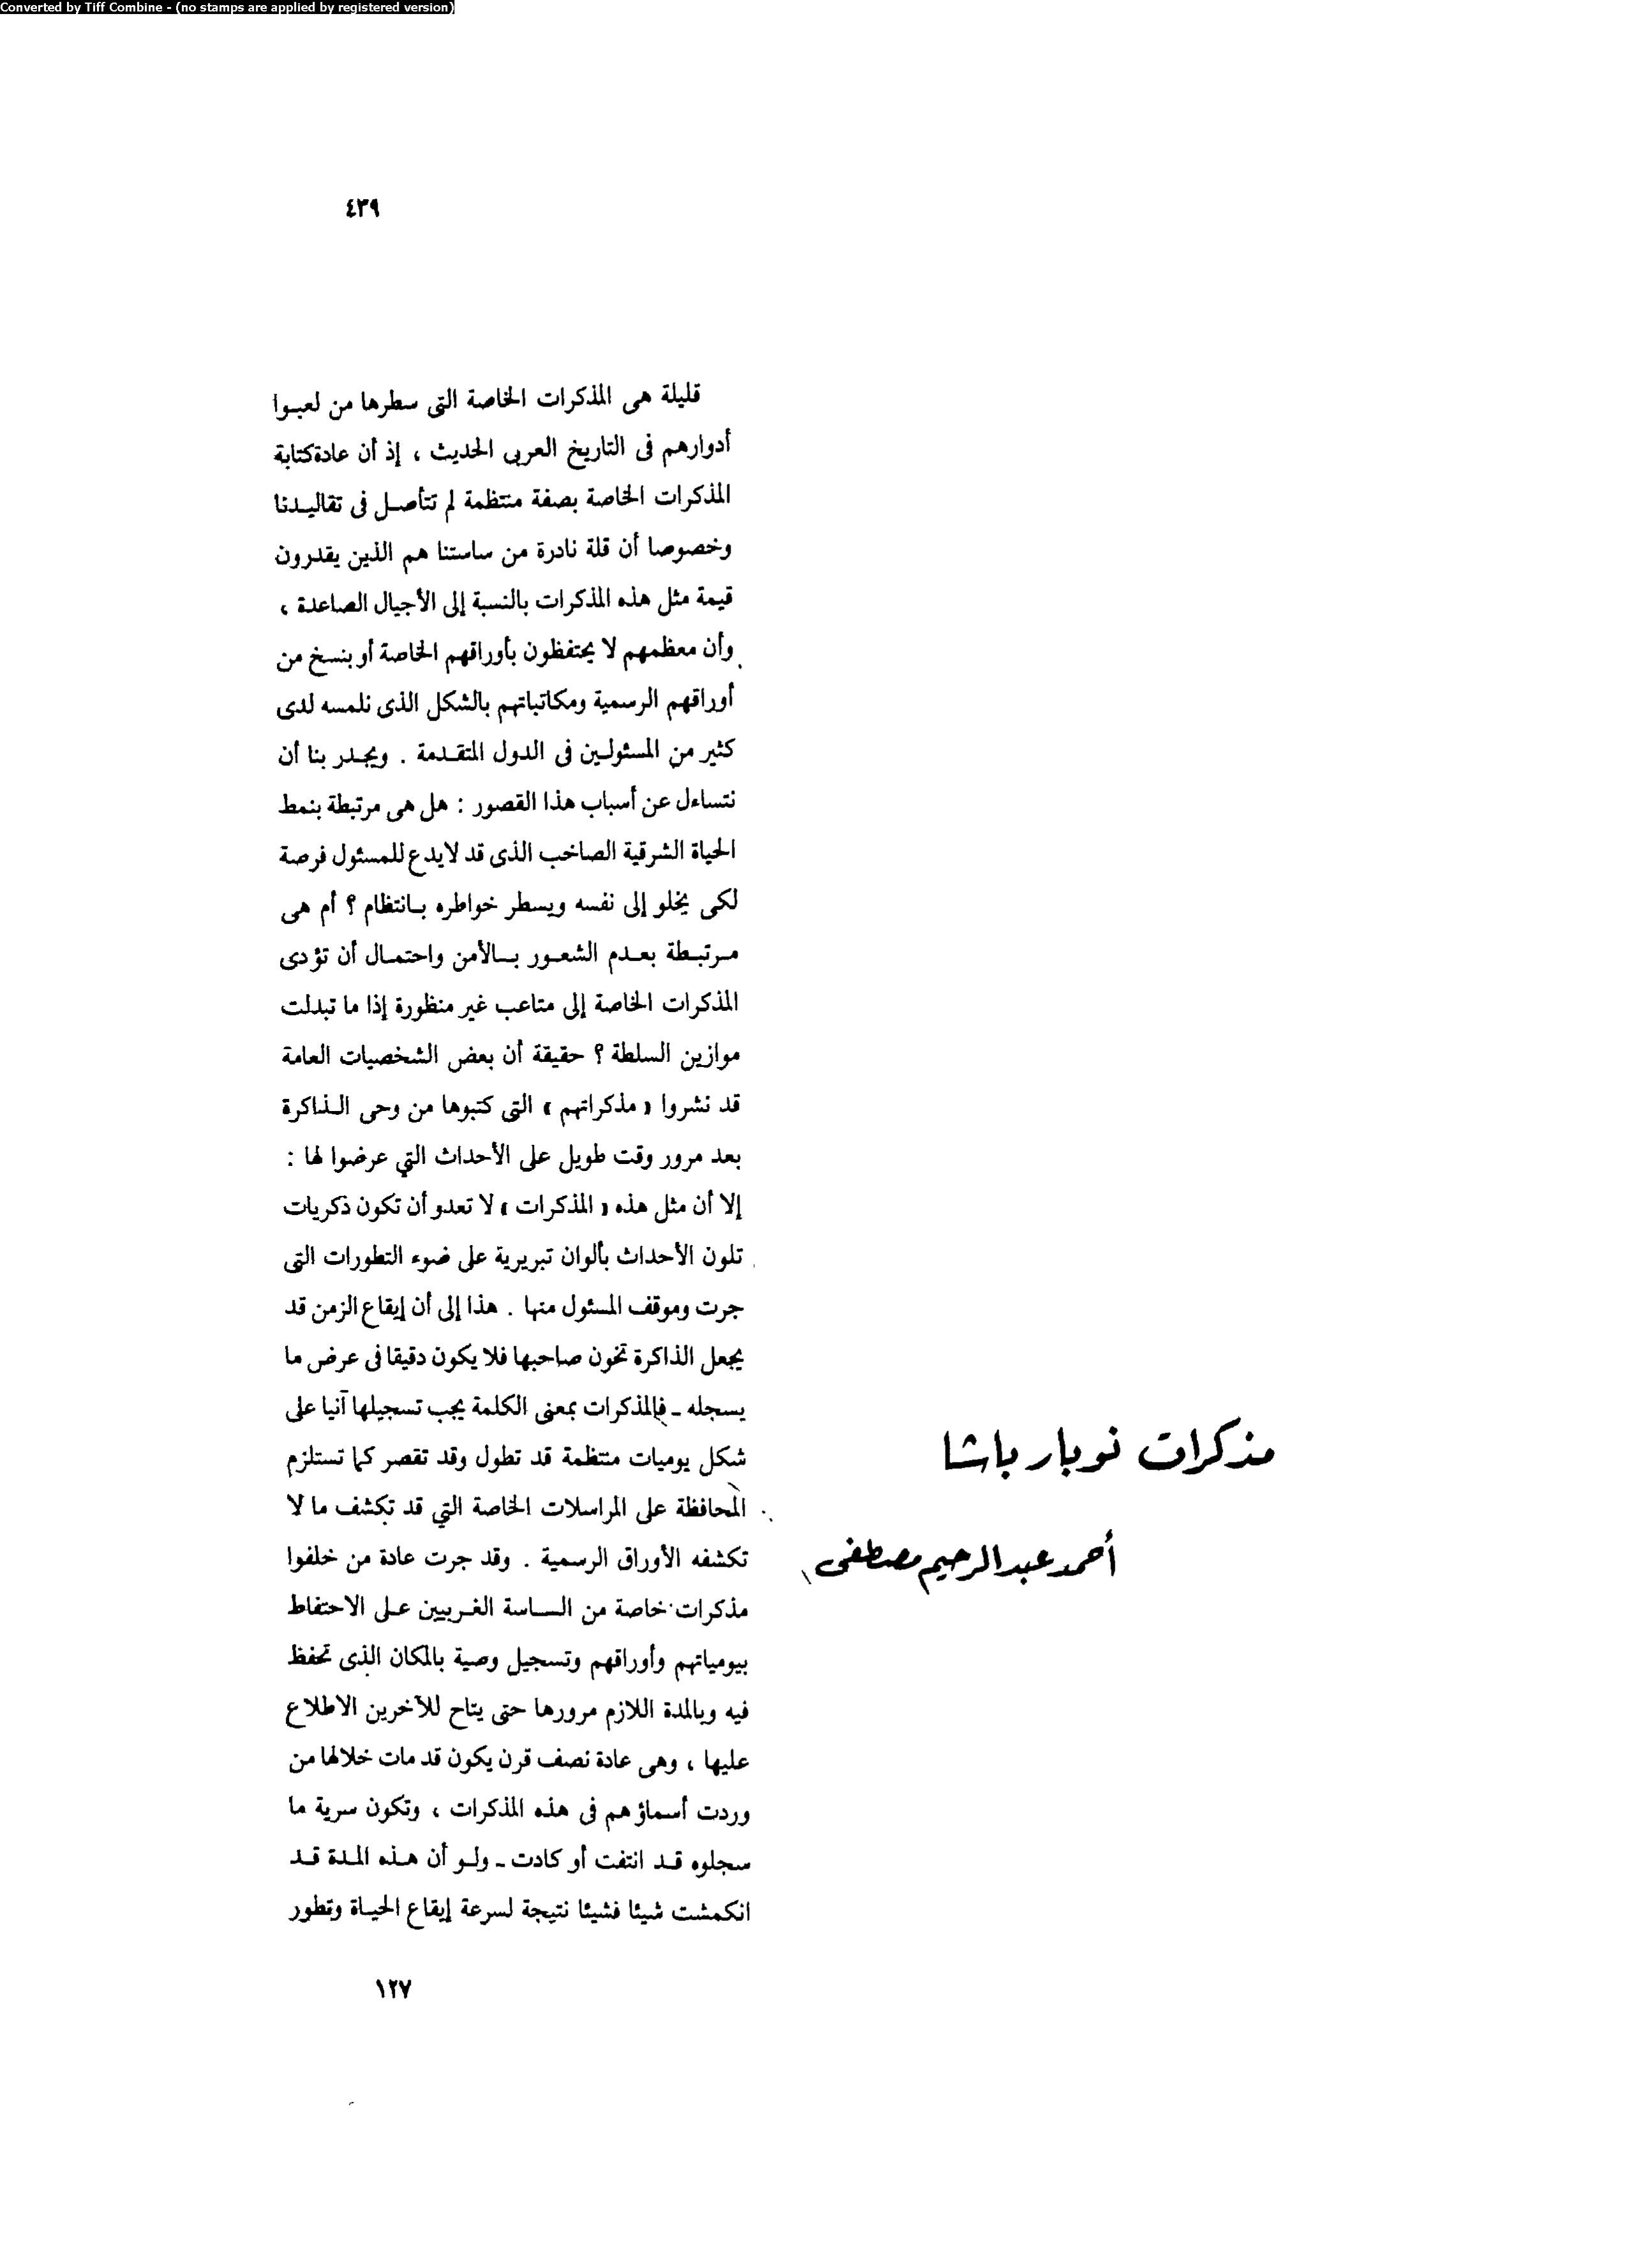 Converted by Tiff Combine - (no stamps are applied by registered version)
٤٣٩
مذكرات نوبار باشا
أحمد عبد الرحيم مصطفى
قليلة هى المذكرات الخاصة التى سطرها من لعبوا
أدوارهم فى التاريخ العربى الحديث ، إذ أن عادة كتابة
المذكرات الخاصة بصفة منتظمة لم تتأصل فى تقاليدنا
وخصوصا أن قلة نادرة من ساستنا هم الذين يقدرون
قيمة مثل هذه المذكرات بالنسبة إلى الأجيال الصاعدة ،
وأن معظمهم لا يحتفظون بأوراقهم الخاصة أو بنسخ من
أوراقهم الرسمية ومكاتباتهم بالشكل الذى نلمسه لدى
كثير من المسئولين فى الدول المتقدمة . ويجدر بنا أن
نتساءل عن أسباب هذا القصور : هل هى مرتبطة بنمط
الحياة الشرقية الصاخب الذى قد لايدع للمسئول فرصة
لكى يخلو إلى نفسه ويسطر خواطره بانتظام ؟ أم هى
مرتبطة بعدم الشعور بالأمن واحتمال أن تؤدى
المذكرات الخاصة إلى متاعب غير منظورة إذا ما تبدلت
موازين السلطة ؟ حقيقة أن بعض الشخصيات العامة
قد نشروا « مذكراتهم » التى كتبوها من وحى الذاكرة
بعد مرور وقت طويل على الأحداث التي عرضوا لها :
إلا أن مثل هذه « المذكرات » لا تعدو أن تكون ذكريات
تلون الأحداث بألوان تبريرية على ضوء التطورات التى
جرت وموقف المسئول منها . هذا إلى أن إيقاع الزمن قد
يجعل الذاكرة تخون صاحبها فلا يكون دقيقا فى عرض ما
يسجله ـ فالمذكرات بمعنى الكلمة يجب تسجيلها آنيا على
شكل يوميات منتظمة قد تطول وقد تقصر كما تستلزم
المحافظة على المراسلات الخاصة التي قد تكشف ما لا
تكشفه الأوراق الرسمية . وقد جرت عادة من خلفوا
مذكرات خاصة من الساسة الغربيين على الاحتفاظ
بيومياتهم وأوراقهم وتسجيل وصية بالمكان الذى تحفظ
فيه وبالمدة اللازم مرورها حتى يتاح للآخرين الاطلاع
عليها ، وهى عادة نصف قرن يكون قد مات خلالها من
وردت أسماؤهم فى هذه المذكرات ، وتكون سرية ما
سجلوه قد انتفت أو كادت ـ ولو أن هذه المدة قد
انكمشت شيئا فشيئا نتيجة لسرعة إيقاع الحياة وتطور
١٢٧